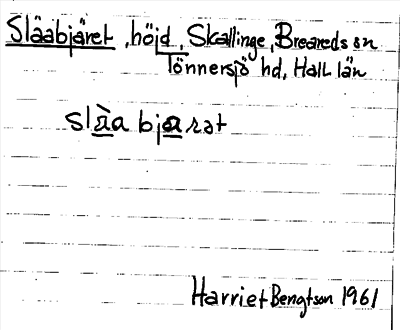 Slääbjäret, höjd, Skallinge, Breareds sn
Tönnersjö hd, Hall. län
slàa bjarət
Harriet Bengtson 1961